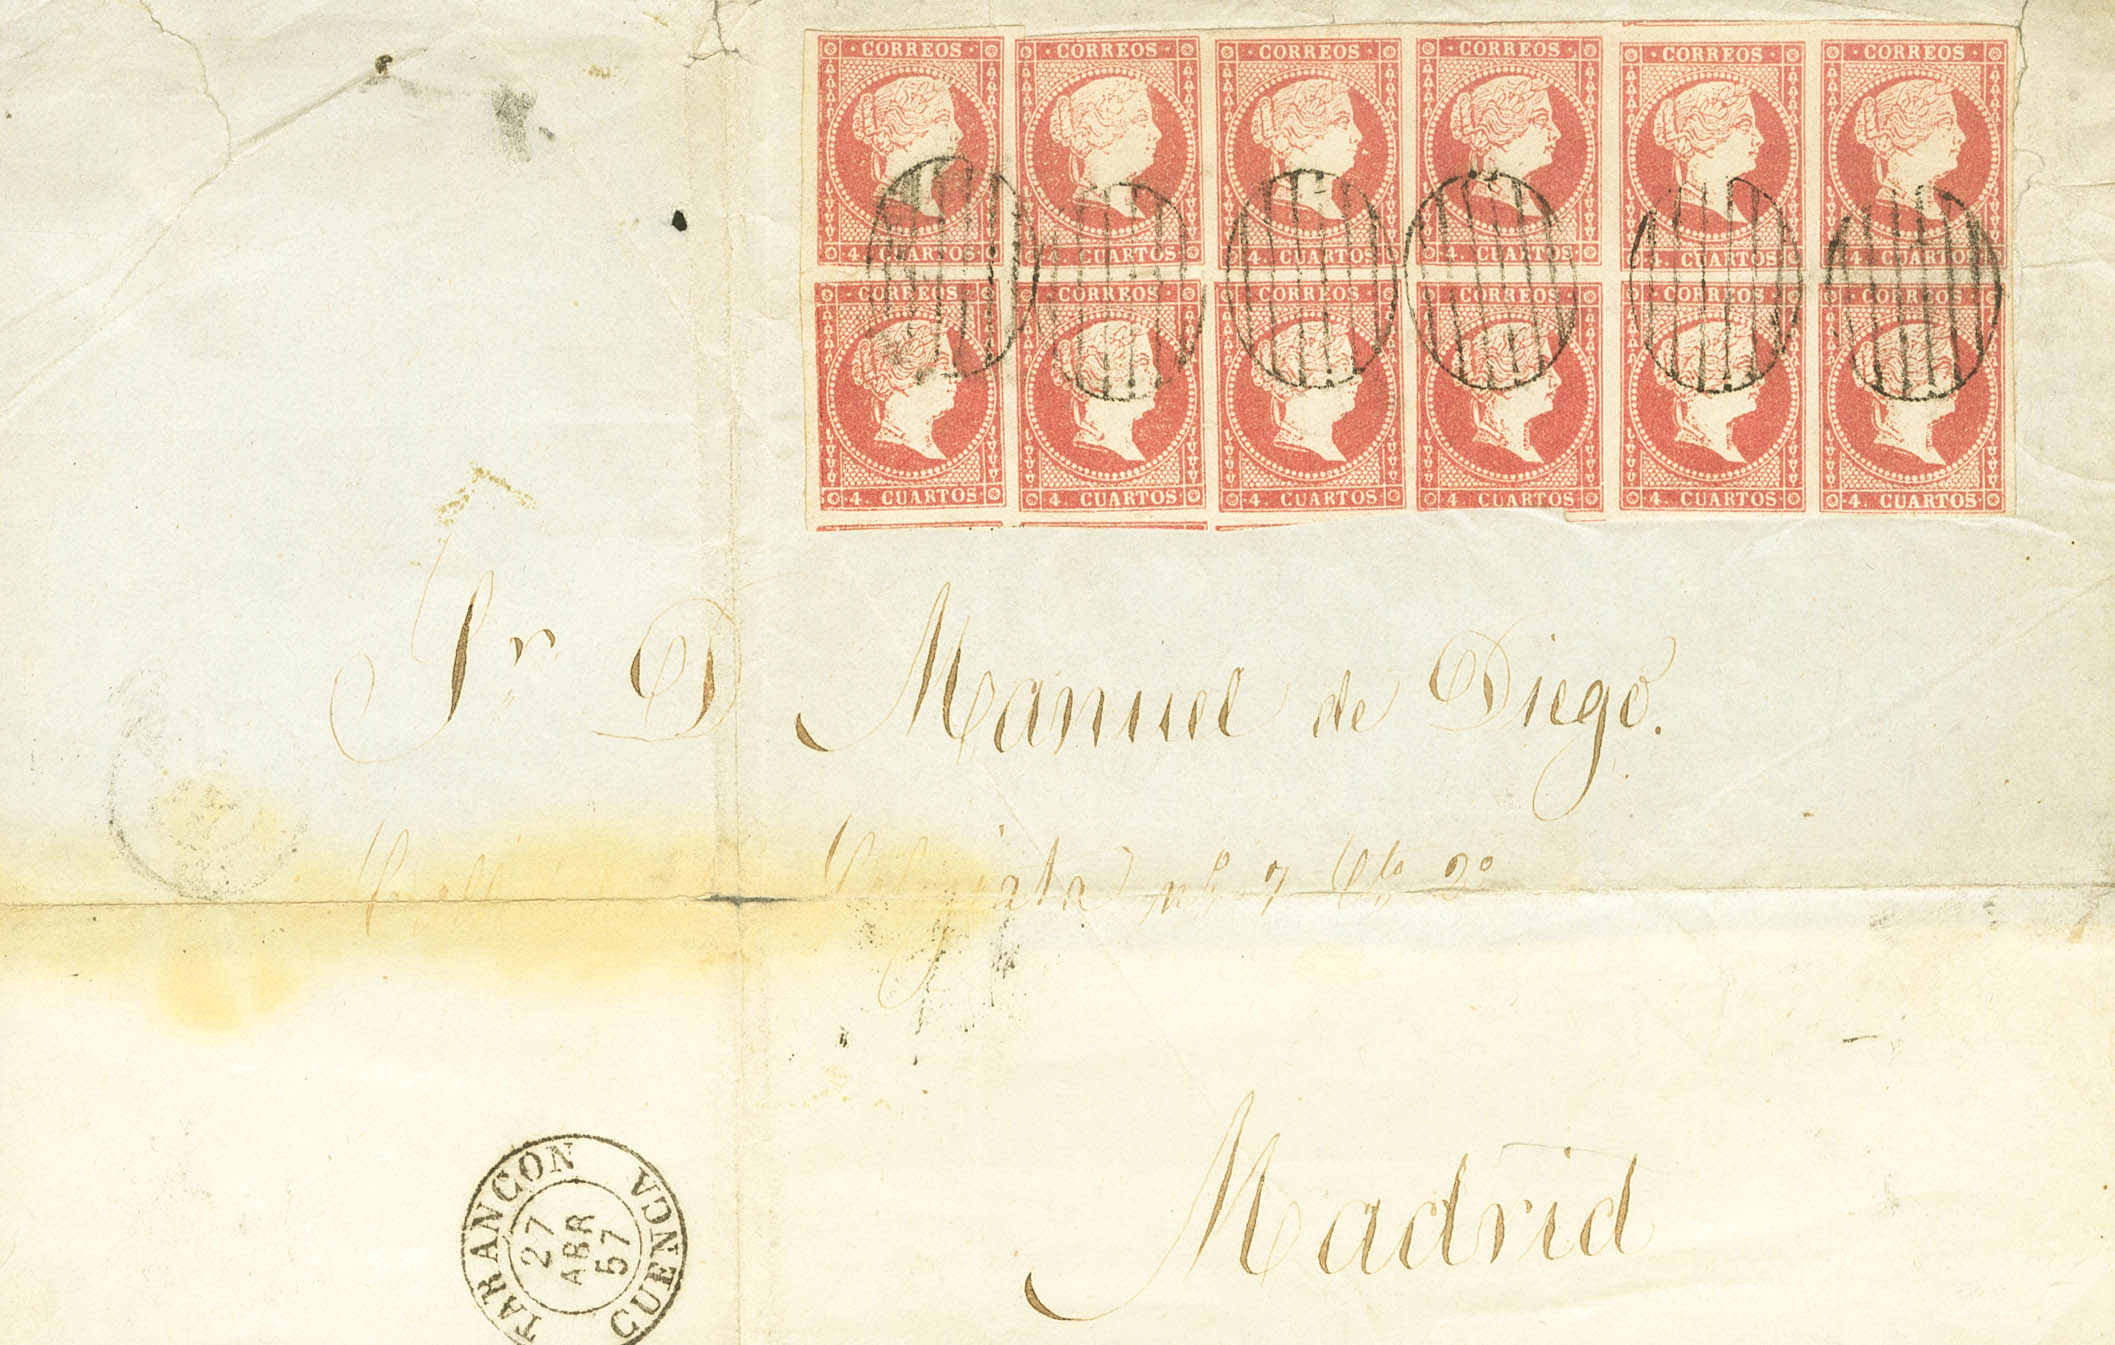 · CORREOS · · CORREOS · · CORREOS · · CORREOS · · CORREOS · · CORREOS ·
4. CUARTOS 4. CUARTOS 4. CUARTOS 4. CUARTOS 4. CUARTOS 4. CUARTOS
· CORREOS · · CORREOS · · CORREOS · · CORREOS · · CORREOS · · CORREOS ·
4. CUARTOS 4. CUARTOS 4. CUARTOS 4. CUARTOS 4. CUARTOS 4. CUARTOS
Sr. D Manuel de Diego.
Calle Colegiata nº 7 Cto 2º
Madrid
TARANCON CUENCA
27
ABR
57